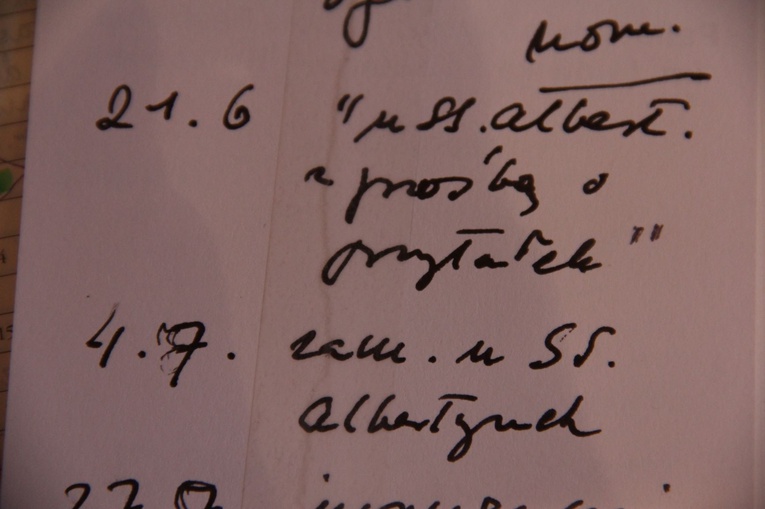 mom.
21.6 "u SS. albert.
z prośbą o
przytułek"
4.7. zam. u SS.
Albertynek